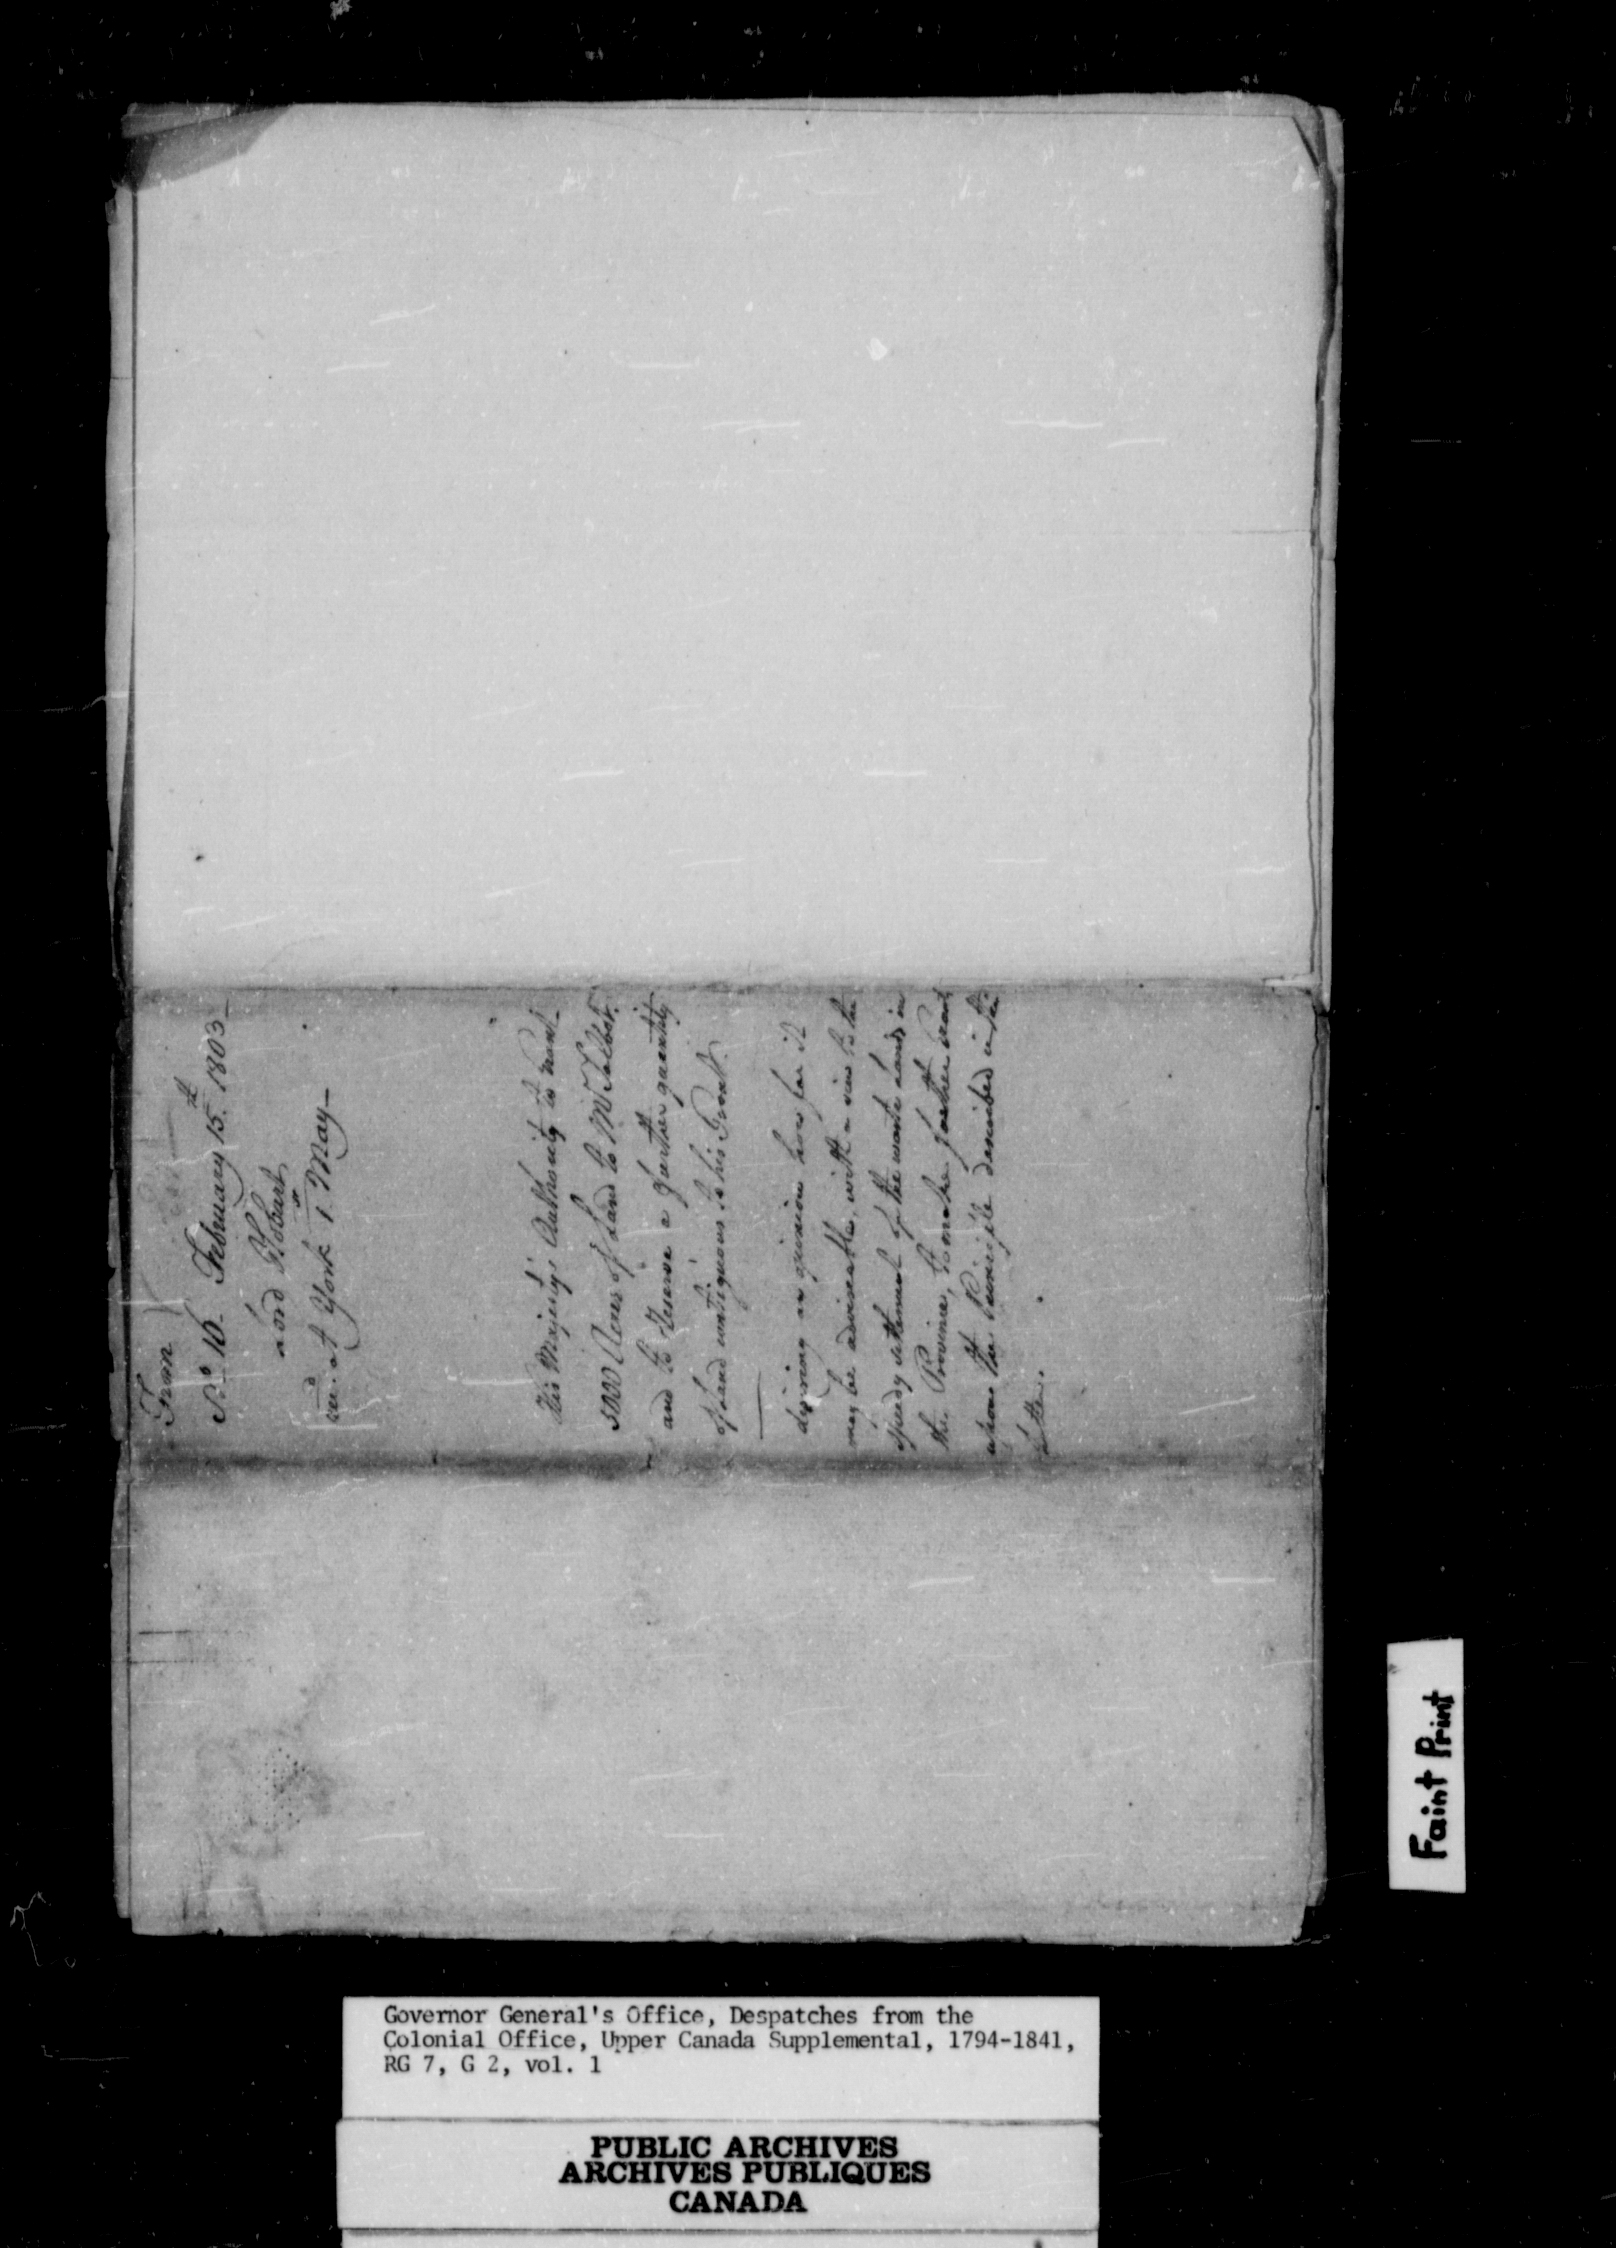 From
No. 16 February 15th 1803-
Lord Hobart
recd. at York 1st May-
His Majesty's Authority to Grant
5000 Acres of Land to Mr. Talbot.
and to Reserve a further quantity
of Land contiguous to his Grant.
desiring an opinion how far it
may be adviseable, with a view to the
speedy settlement of the waste Lands in
the Province, to make further Grants
upon the Principle described in this
Letter.
Faint Print
Governor General's Office, Despatches from the
Colonial Office, Upper Canada Supplemental, 1794-1841,
RG 7, G 2, vol. 1
PUBLIC ARCHIVES
ARCHIVES PUBLIQUES
CANADA